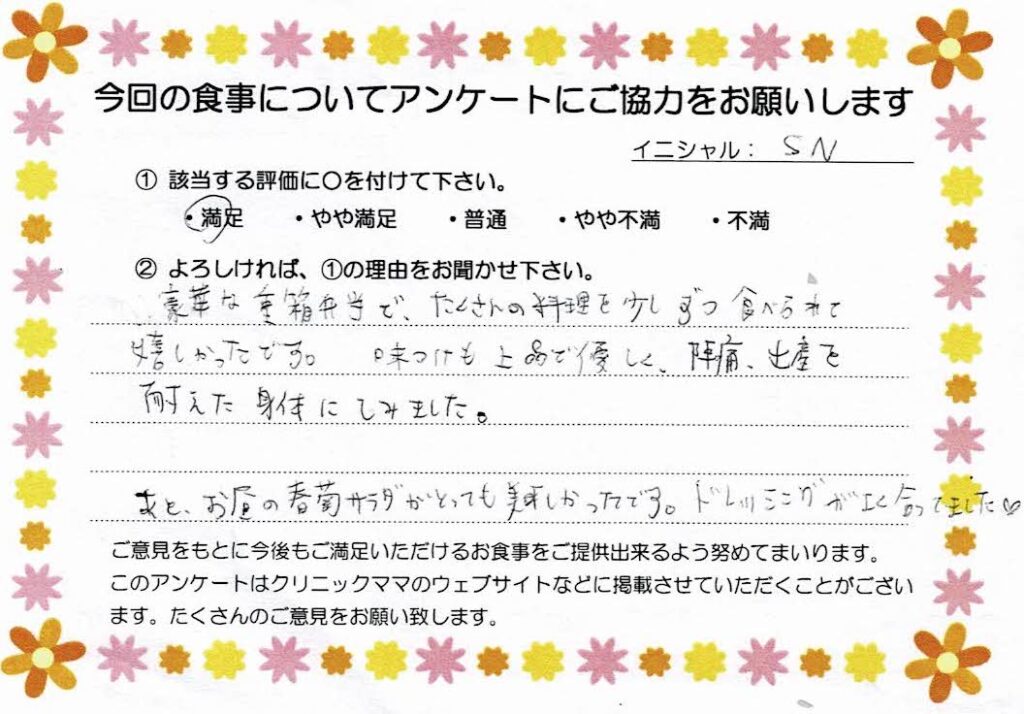 今回の食事についてアンケートにご協力をお願いします
イニシャル： SN
① 該当する評価に〇を付けて下さい。
・満足 ・やや満足 ・普通 ・やや不満 ・不満
② よろしければ、①の理由をお聞かせ下さい。
豪華な重箱弁当で、たくさんの料理を少しずつ食べられて
嬉しかったです。 味つけも上品で優しく、陣痛、出産を
耐えた身体にしみました。
あと、お昼の春菊サラダがとっても美味しかったです。ドレッシングがよく合ってました♡
ご意見をもとに今後もご満足いただけるお食事をご提供出来るよう努めてまいります。
このアンケートはクリニックママのウェブサイトなどに掲載させていただくことがござい
ます。たくさんのご意見をお願い致します。